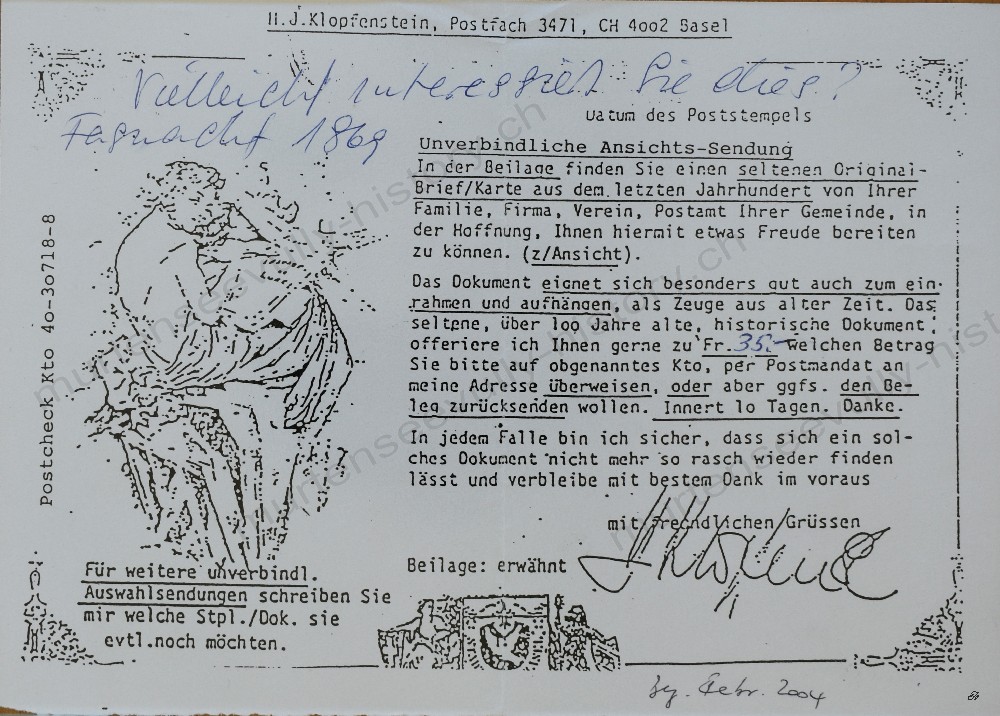 H.J.Klopfenstein, Postfach 3471, CH 4002 Basel
Vielleicht interessiert Sie dies?
Fasnacht 1869
Datum des Poststempels
Unverbindliche Ansichts-Sendung
In der Beilage finden Sie einen seltenen Original-
Brief/Karte aus dem letzten Jahrhundert von Ihrer
Familie, Firma, Verein, Postamt Ihrer Gemeinde, in
der Hoffnung, Ihnen hiermit etwas Freude bereiten
zu können. (z/Ansicht).
Das Dokument eignet sich besonders gut auch zum ein-
rahmen und aufhängen, als Zeuge aus alter Zeit. Das
seltene, über 100 Jahre alte, historische Dokument,
offeriere ich Ihnen gerne zu Fr. 35.- welchen Betrag
Sie bitte auf obgenanntes Kto, per Postmandat an
meine Adresse überweisen, oder aber ggfs. den Be-
leg zurücksenden wollen. Innert 10 Tagen. Danke.
In jedem Falle bin ich sicher, dass sich ein sol-
ches Dokument nicht mehr so rasch wieder finden
lässt und verbleibe mit bestem Dank im voraus
mit freundlichen Grüssen
Beilage: erwähnt
Postcheck Kto 40-30718-8
Für weitere unverbindl.
Auswahlsendungen schreiben Sie
mir welche Stpl./Dok. sie
evtl.noch möchten.
Febr. 2004
murtenseevully-history.ch
murtenseevully-history.ch
murtenseevully-history.ch